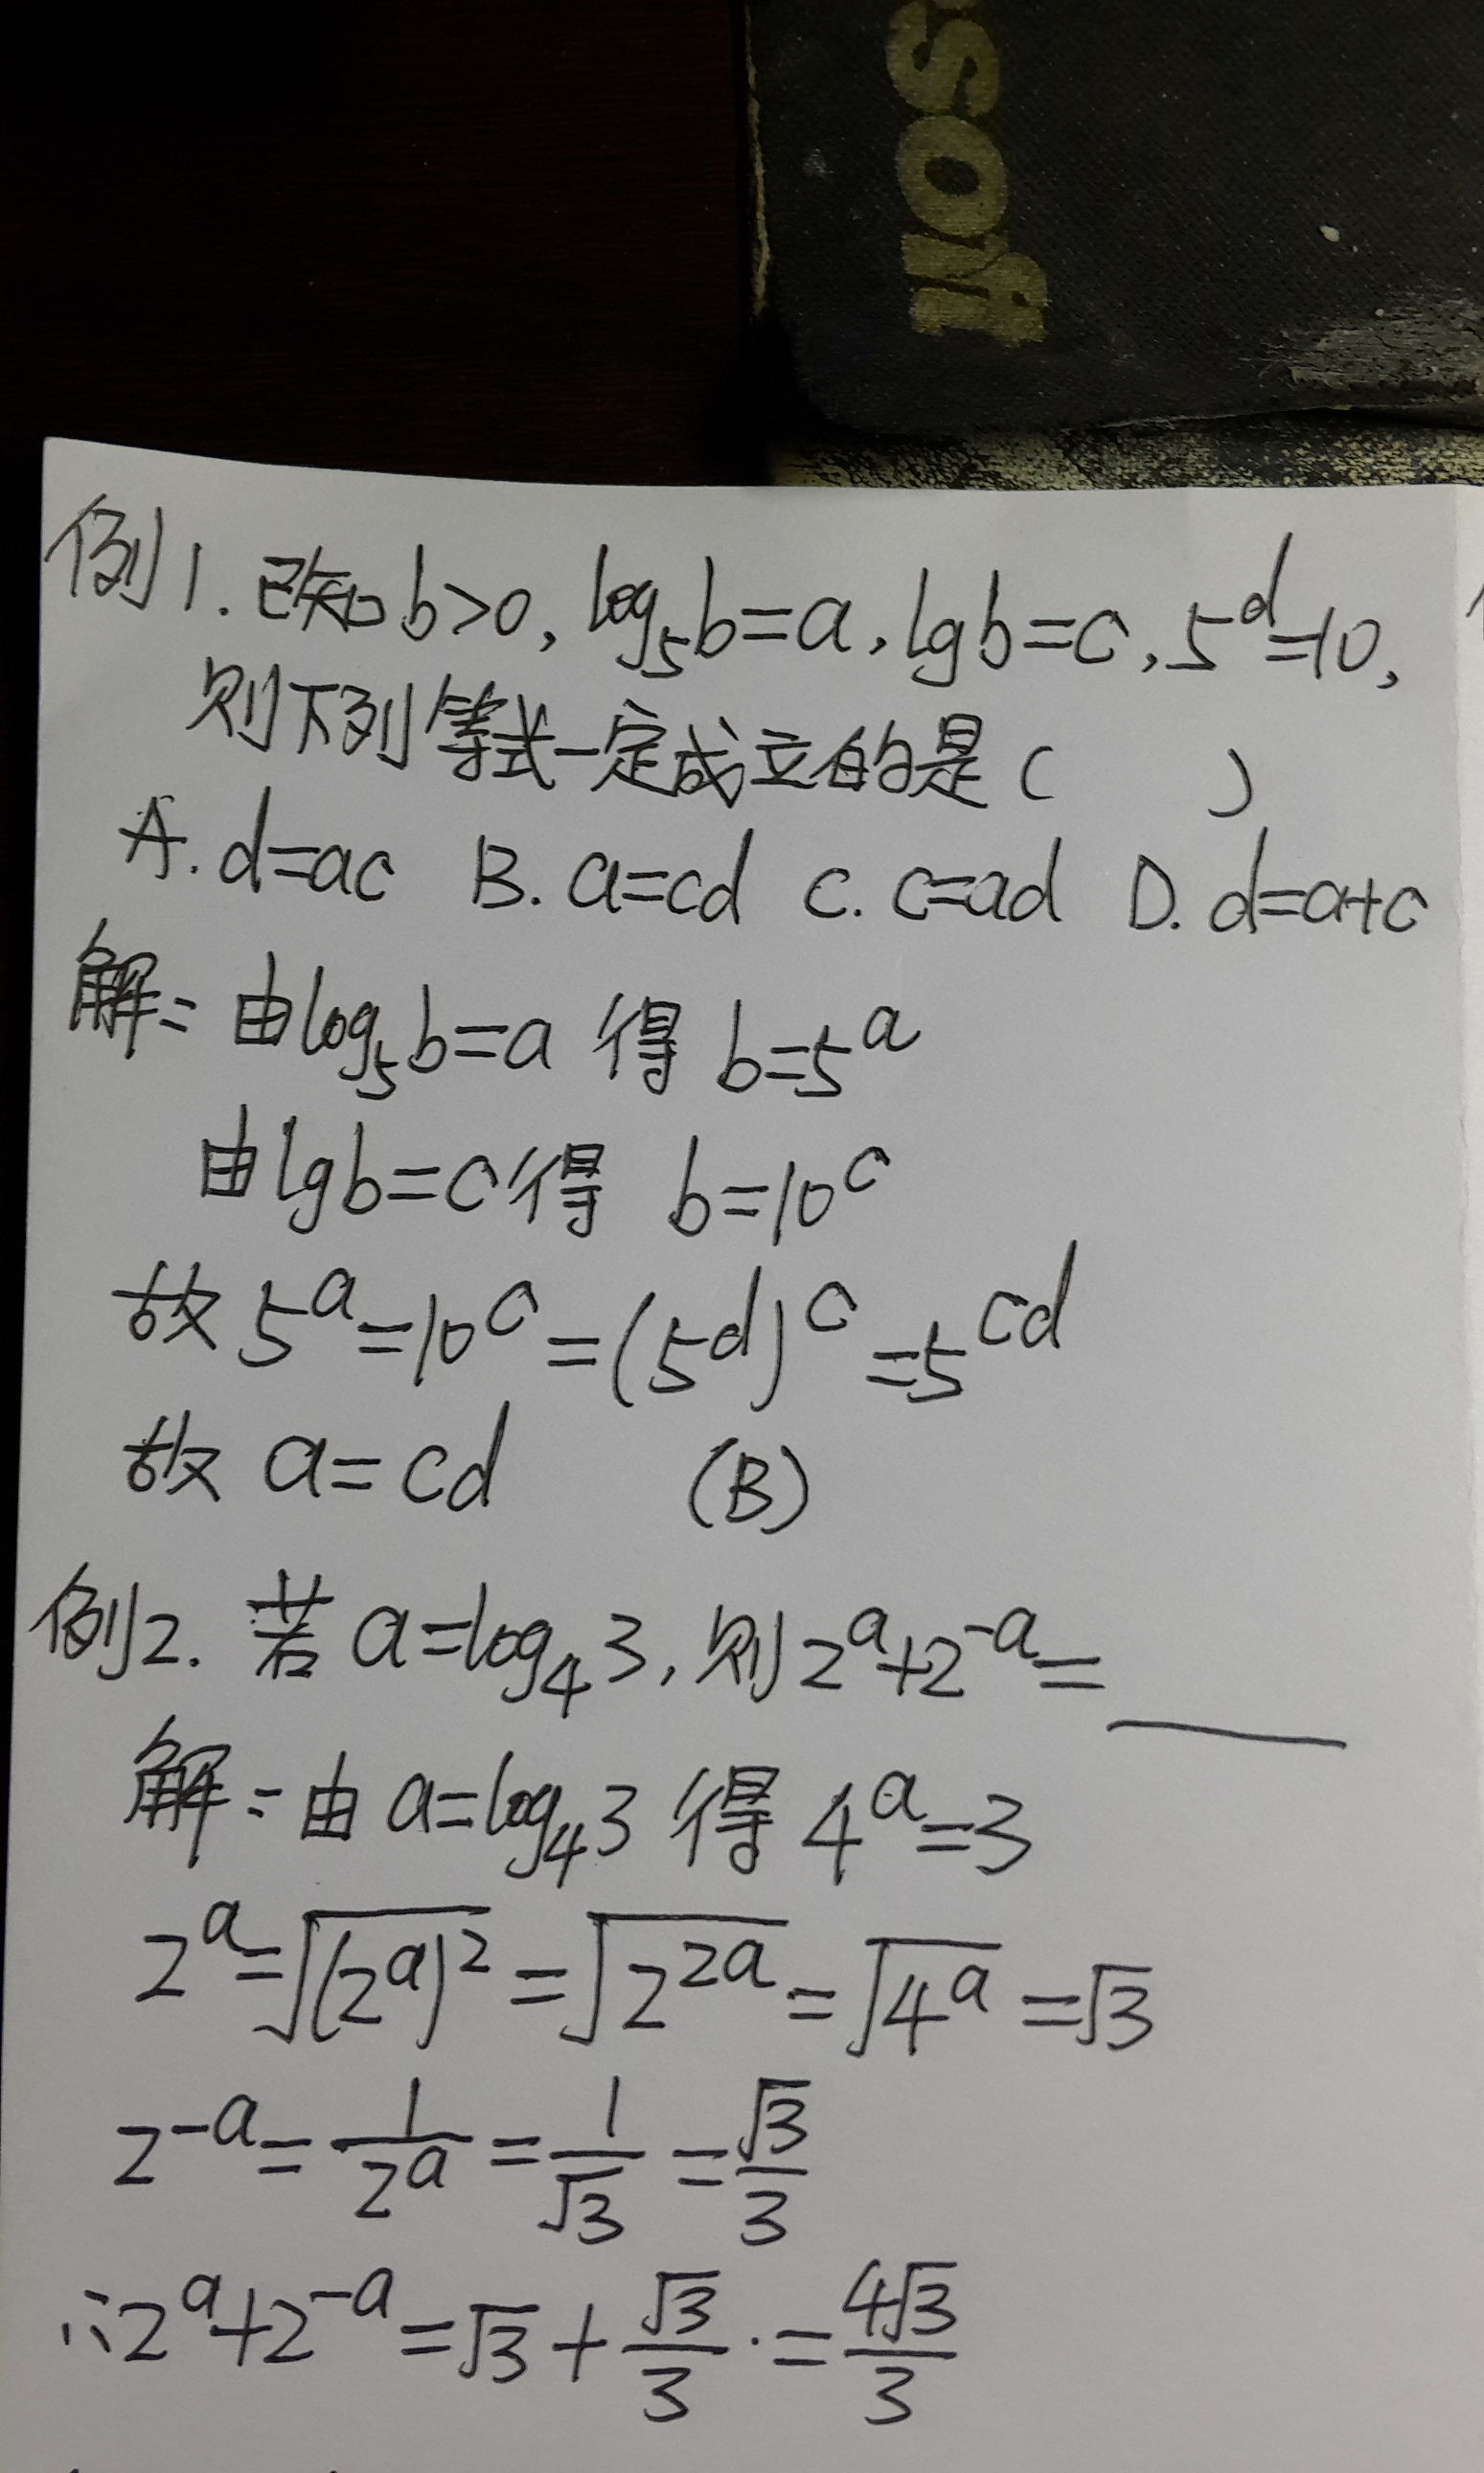 soft
例1. 已知b>0, log₅b=a, lgb=c, 5^d=10,
则下列等式一定成立的是(    )
A. d=ac  B. a=cd  C. c=ad  D. d=a+c
解: 由log₅b=a 得 b=5^a
由lgb=c得 b=10^c
故 5^a=10^c=(5^d)^c=5^cd
故 a=cd (B)
例2. 若 a=log₄3, 则2^a+2^-a=____
解: 由 a=log₄3 得 4^a=3
2^a=√(2^a)^2=√2^2a=√4^a=√3
2^-a=1/2^a=1/√3=√3/3
∴2^a+2^-a=√3+√3/3=4√3/3